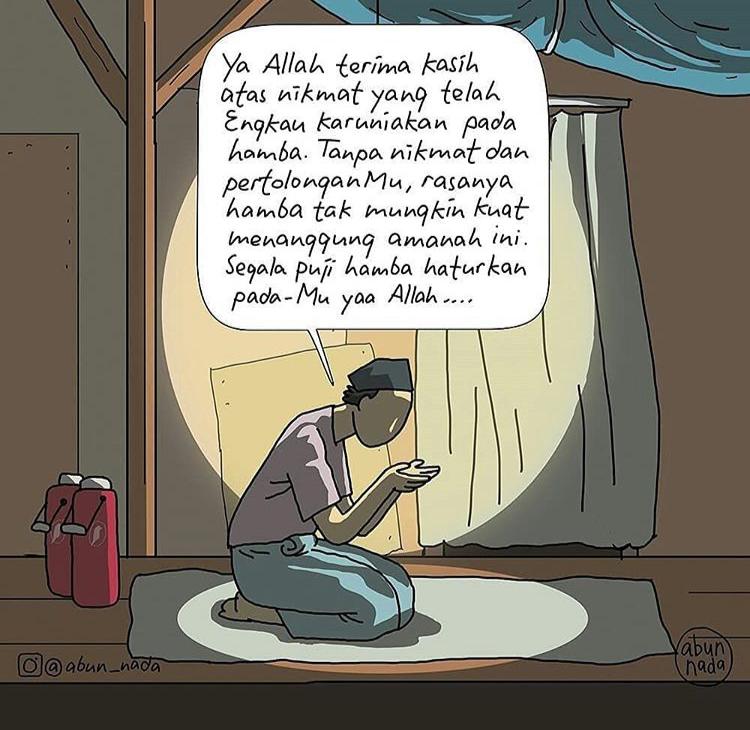 Ya Allah terima kasih
atas nikmat yang telah
Engkau karuniakan pada
hamba. Tanpa nikmat dan
pertolonganMu, rasanya
hamba tak mungkin kuat
menanggung amanah ini.
Segala puji hamba haturkan
pada-Mu yaa Allah....
@abun_nada
abun
nada